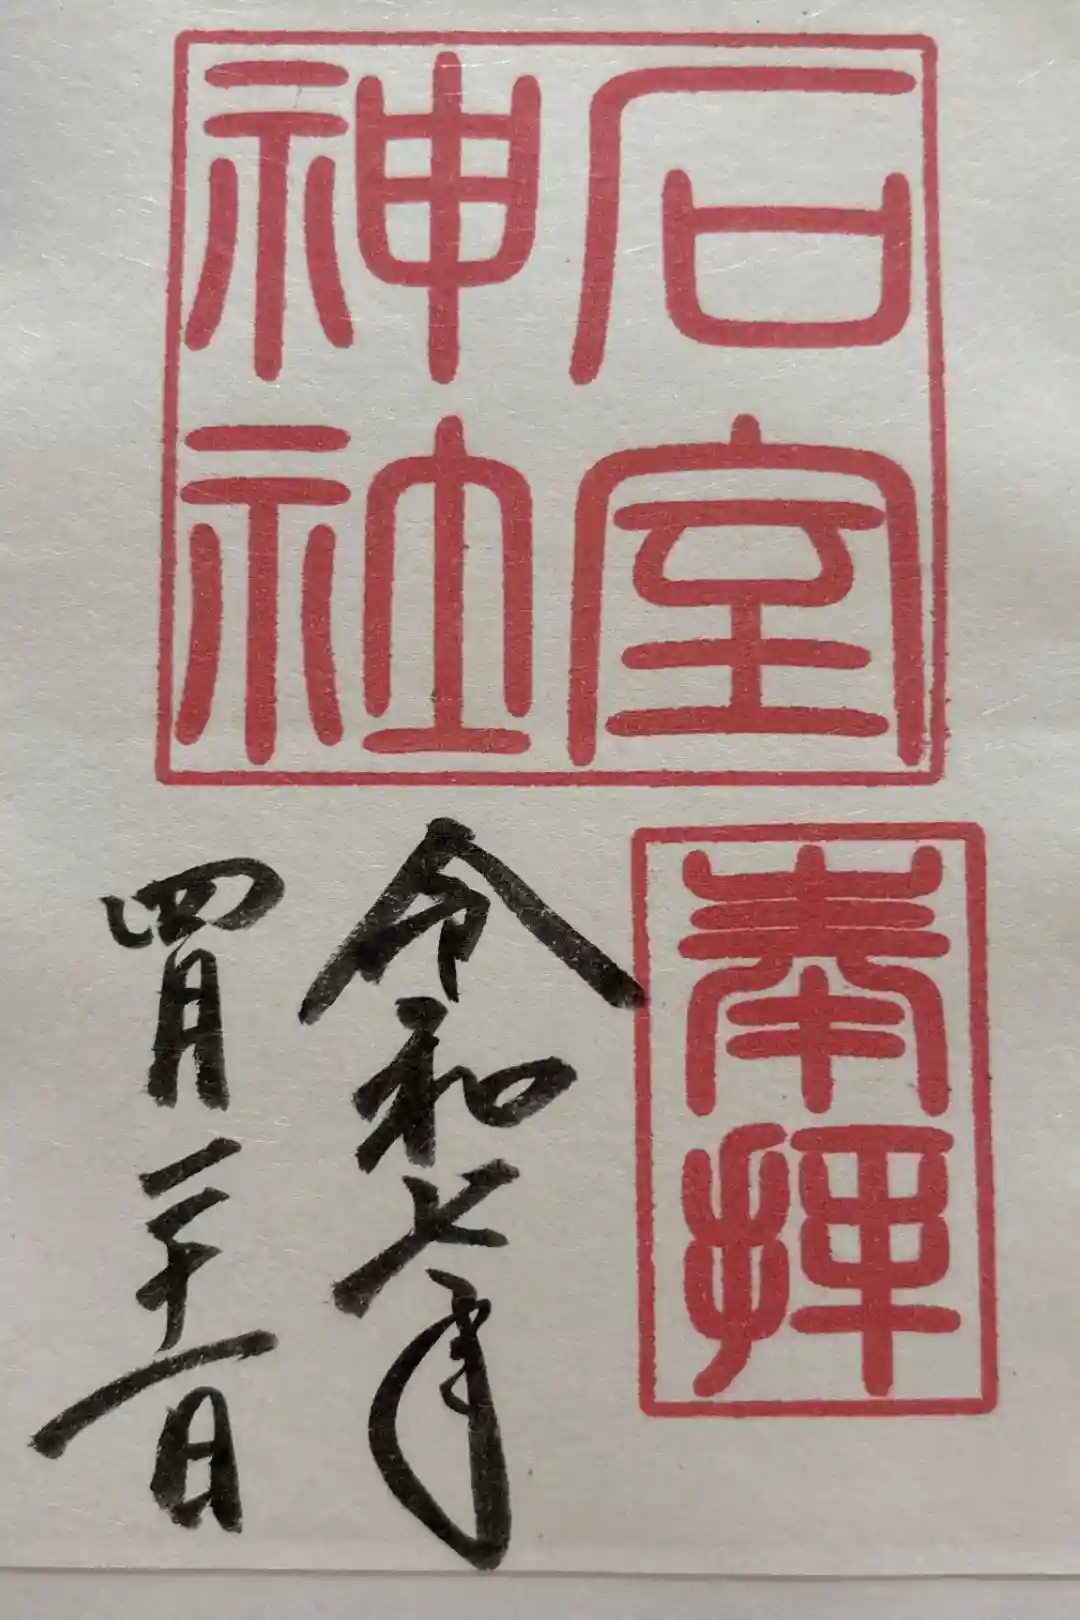 石室
神社
奉拝
令和七年
四月二十一日